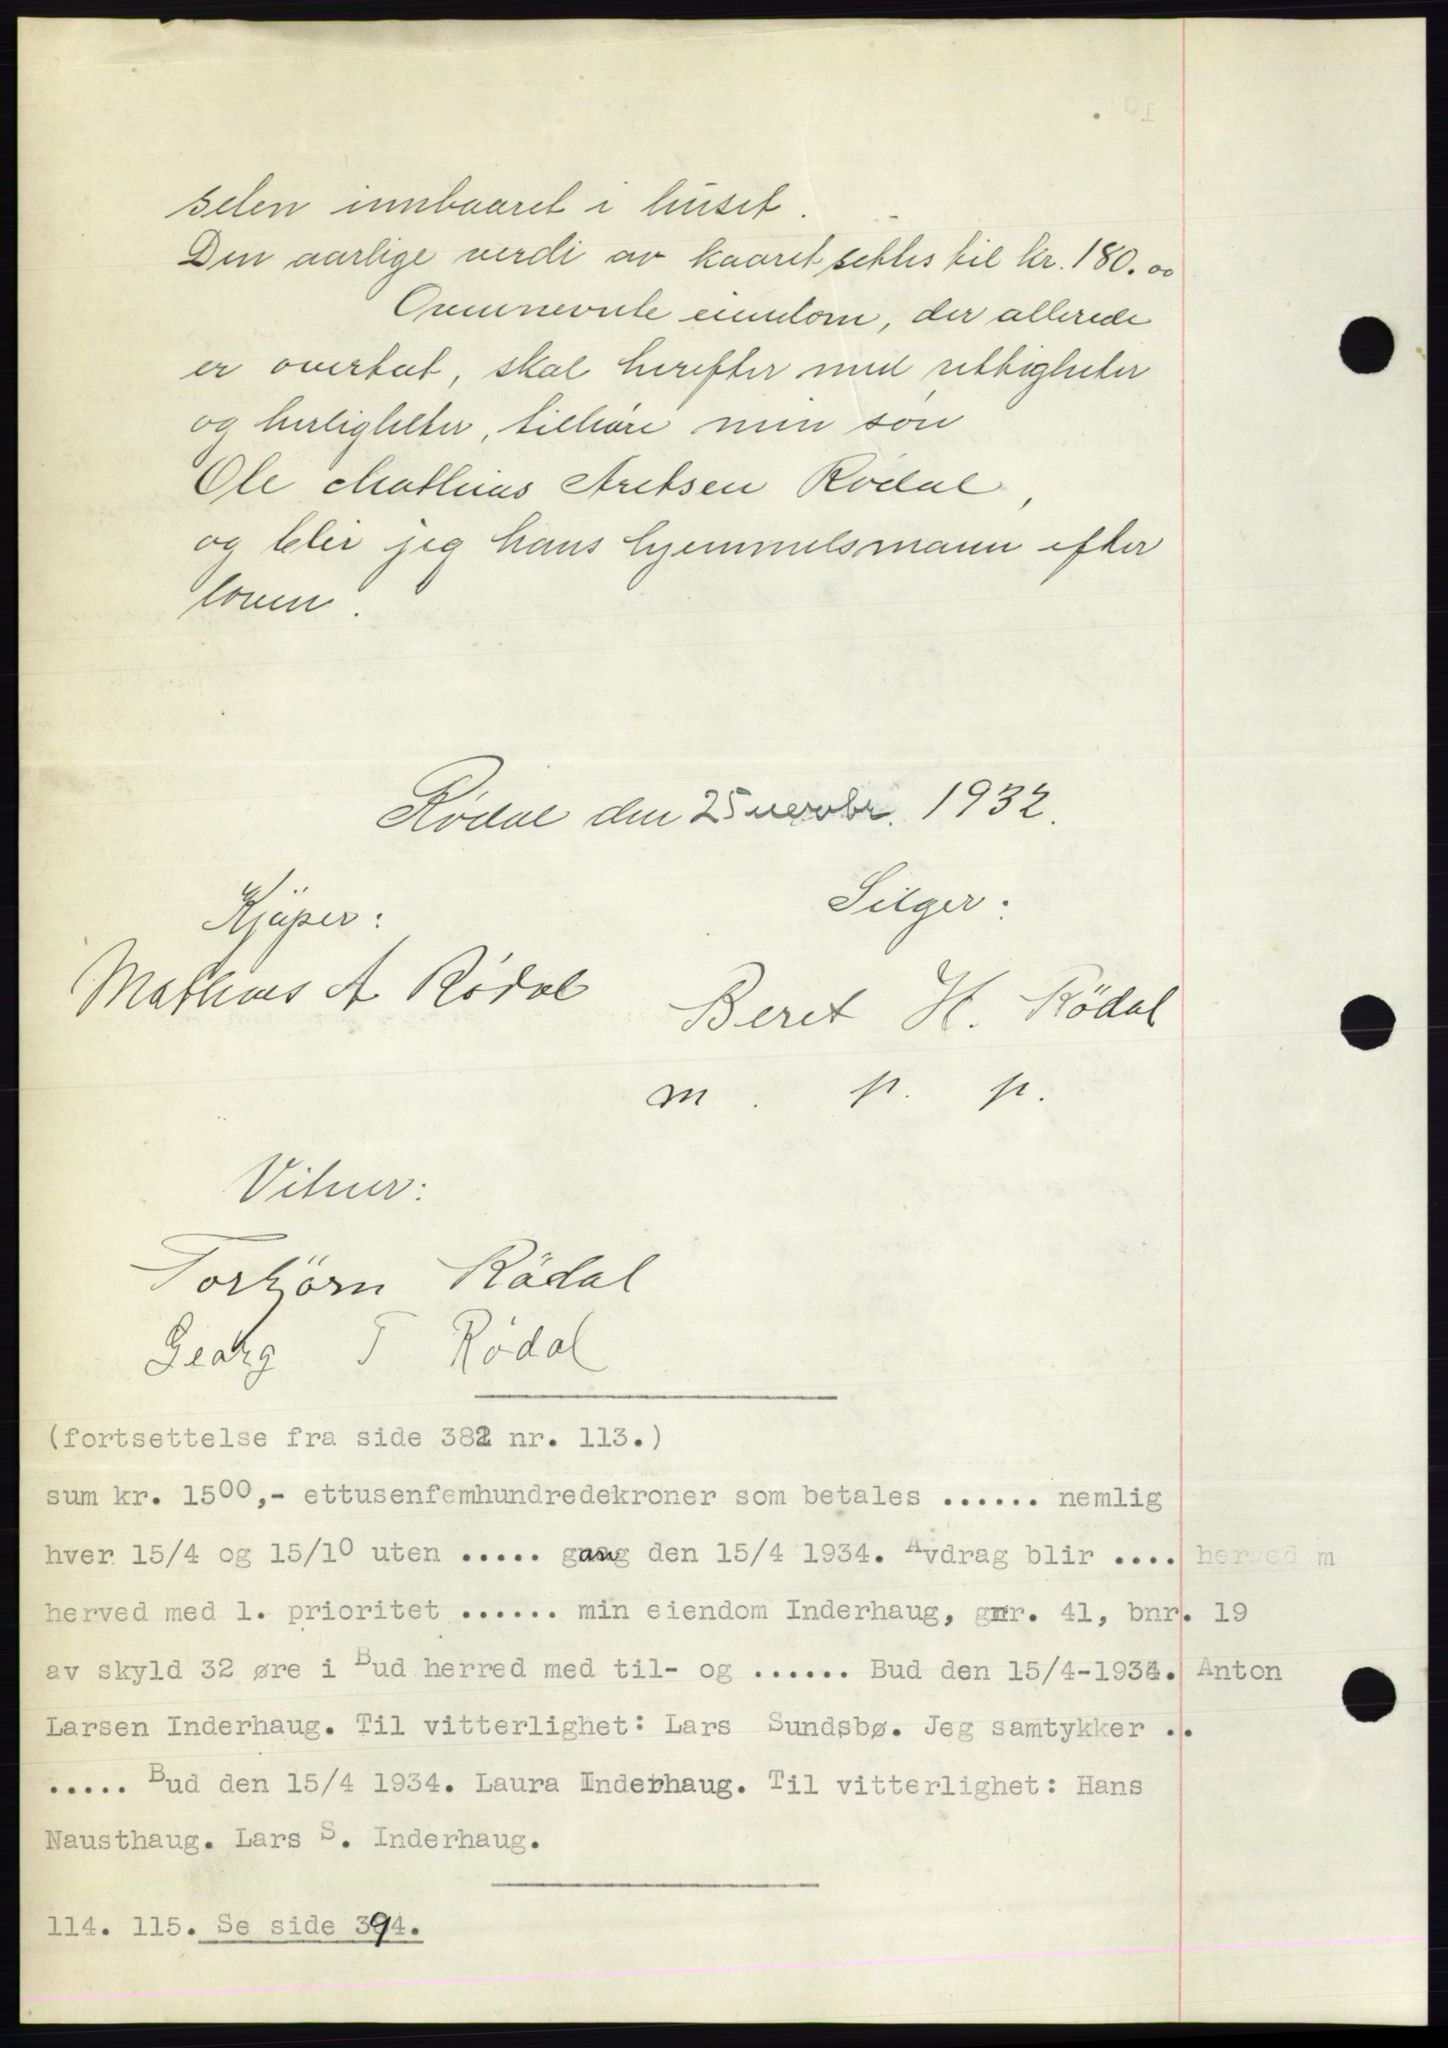 selen innbaaret i huset.
Den aarlige verdi av kaaret settes til kr. 180.00
Ovennevnte eiendom, der allerede
er overtat, skal herefter med rettigheter
og herligheter, tilhøre min søn
Ole Mathias Aretsen Rødal,
og blir jeg hans hjemmelsmann efter
loven.
Rødal den 25 novbr. 1932.
Kjøper: Selger:
Mathias A Rødal Beret H. Rödal
m. p. p.
Vitner:
Torbjörn Rödal
Georg T Rödal
(fortsettelse fra side 382 nr. 113.)
sum kr. 1500,- ettusenfemhundredekroner som betales ...... nemlig
hver 15/4 og 15/10 uten ..... gang den 15/4 1934. Avdrag blir .... herved m
herved med 1. prioritet ...... min eiendom Inderhaug, gnr. 41, bnr. 19
av skyld 32 øre i Bud herred med til- og ...... Bud den 15/4-1934. Anton
Larsen Inderhaug. Til vitterlighet: Lars Sundsbø. Jeg samtykker ..
..... Bud den 15/4 1934. Laura Inderhaug. Til vitterlighet: Hans
Nausthaug. Lars S. Inderhaug.
114. 115. Se side 394.